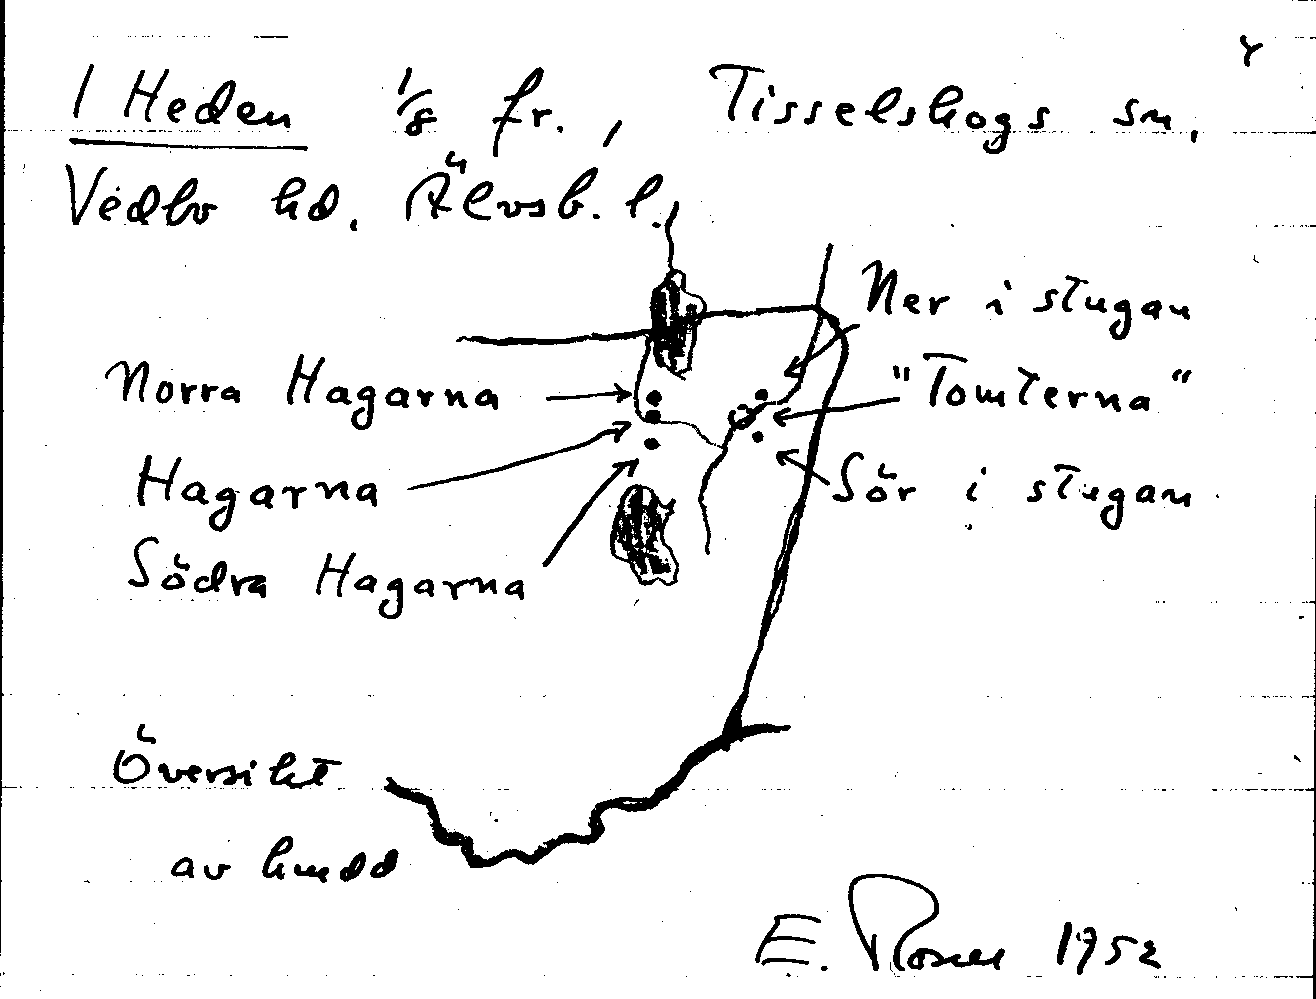 1 Heden 1/8 fr., Tisselskogs sn.
Vedbo hd. Älvsb. l.
Ner i stugan
Norra Hagarna
"Tomterna"
Hagarna
Sör i stugan
Södra Hagarna
Översikt
av hmdd
E. 1952